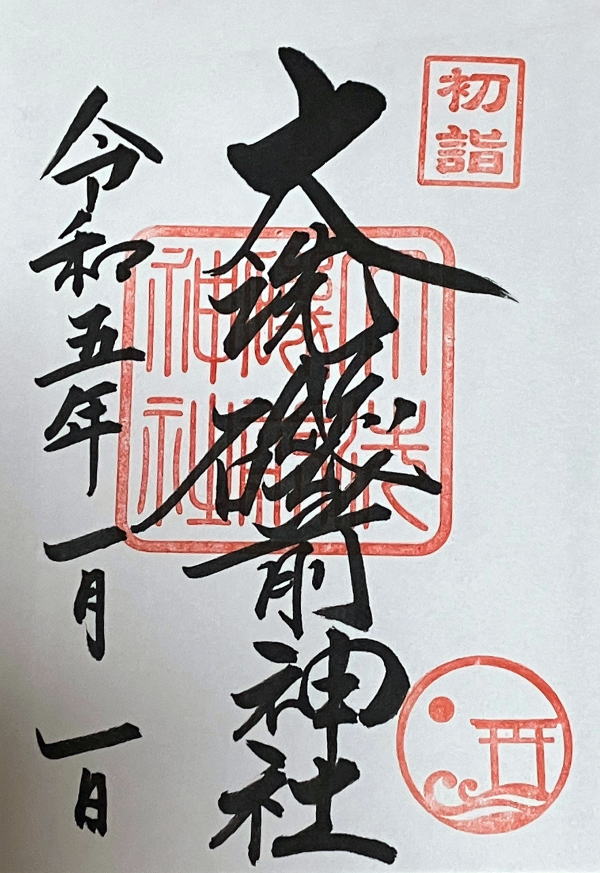 初詣
大洗磯前神社
大洗
磯前
神社
令和五年一月一日